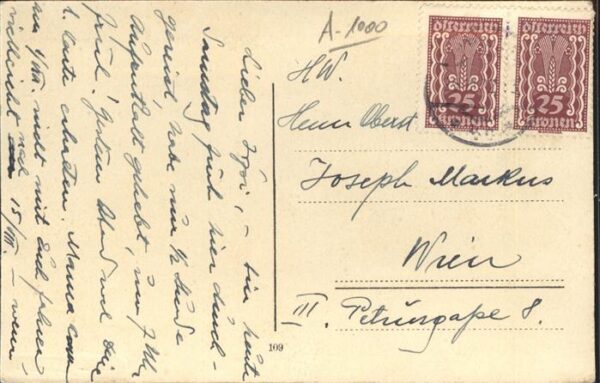 A-1000
Österreich Österreich
25 25
Kronen Kronen
H.W.
Herrn Oberst
Joseph Markus
Wien
III. Petrusgaße 8.
109
Lieber – bin heute
Samstag früh hier durch-
gereist, habe nur ½ Stunde
Aufenthalt gehabt, um 7 Uhr
früh! Gestern Abend
1. Karte erhalten. Mama
am /VIII. nicht mit Euch
vielleicht nach 15/VIII. – wenn